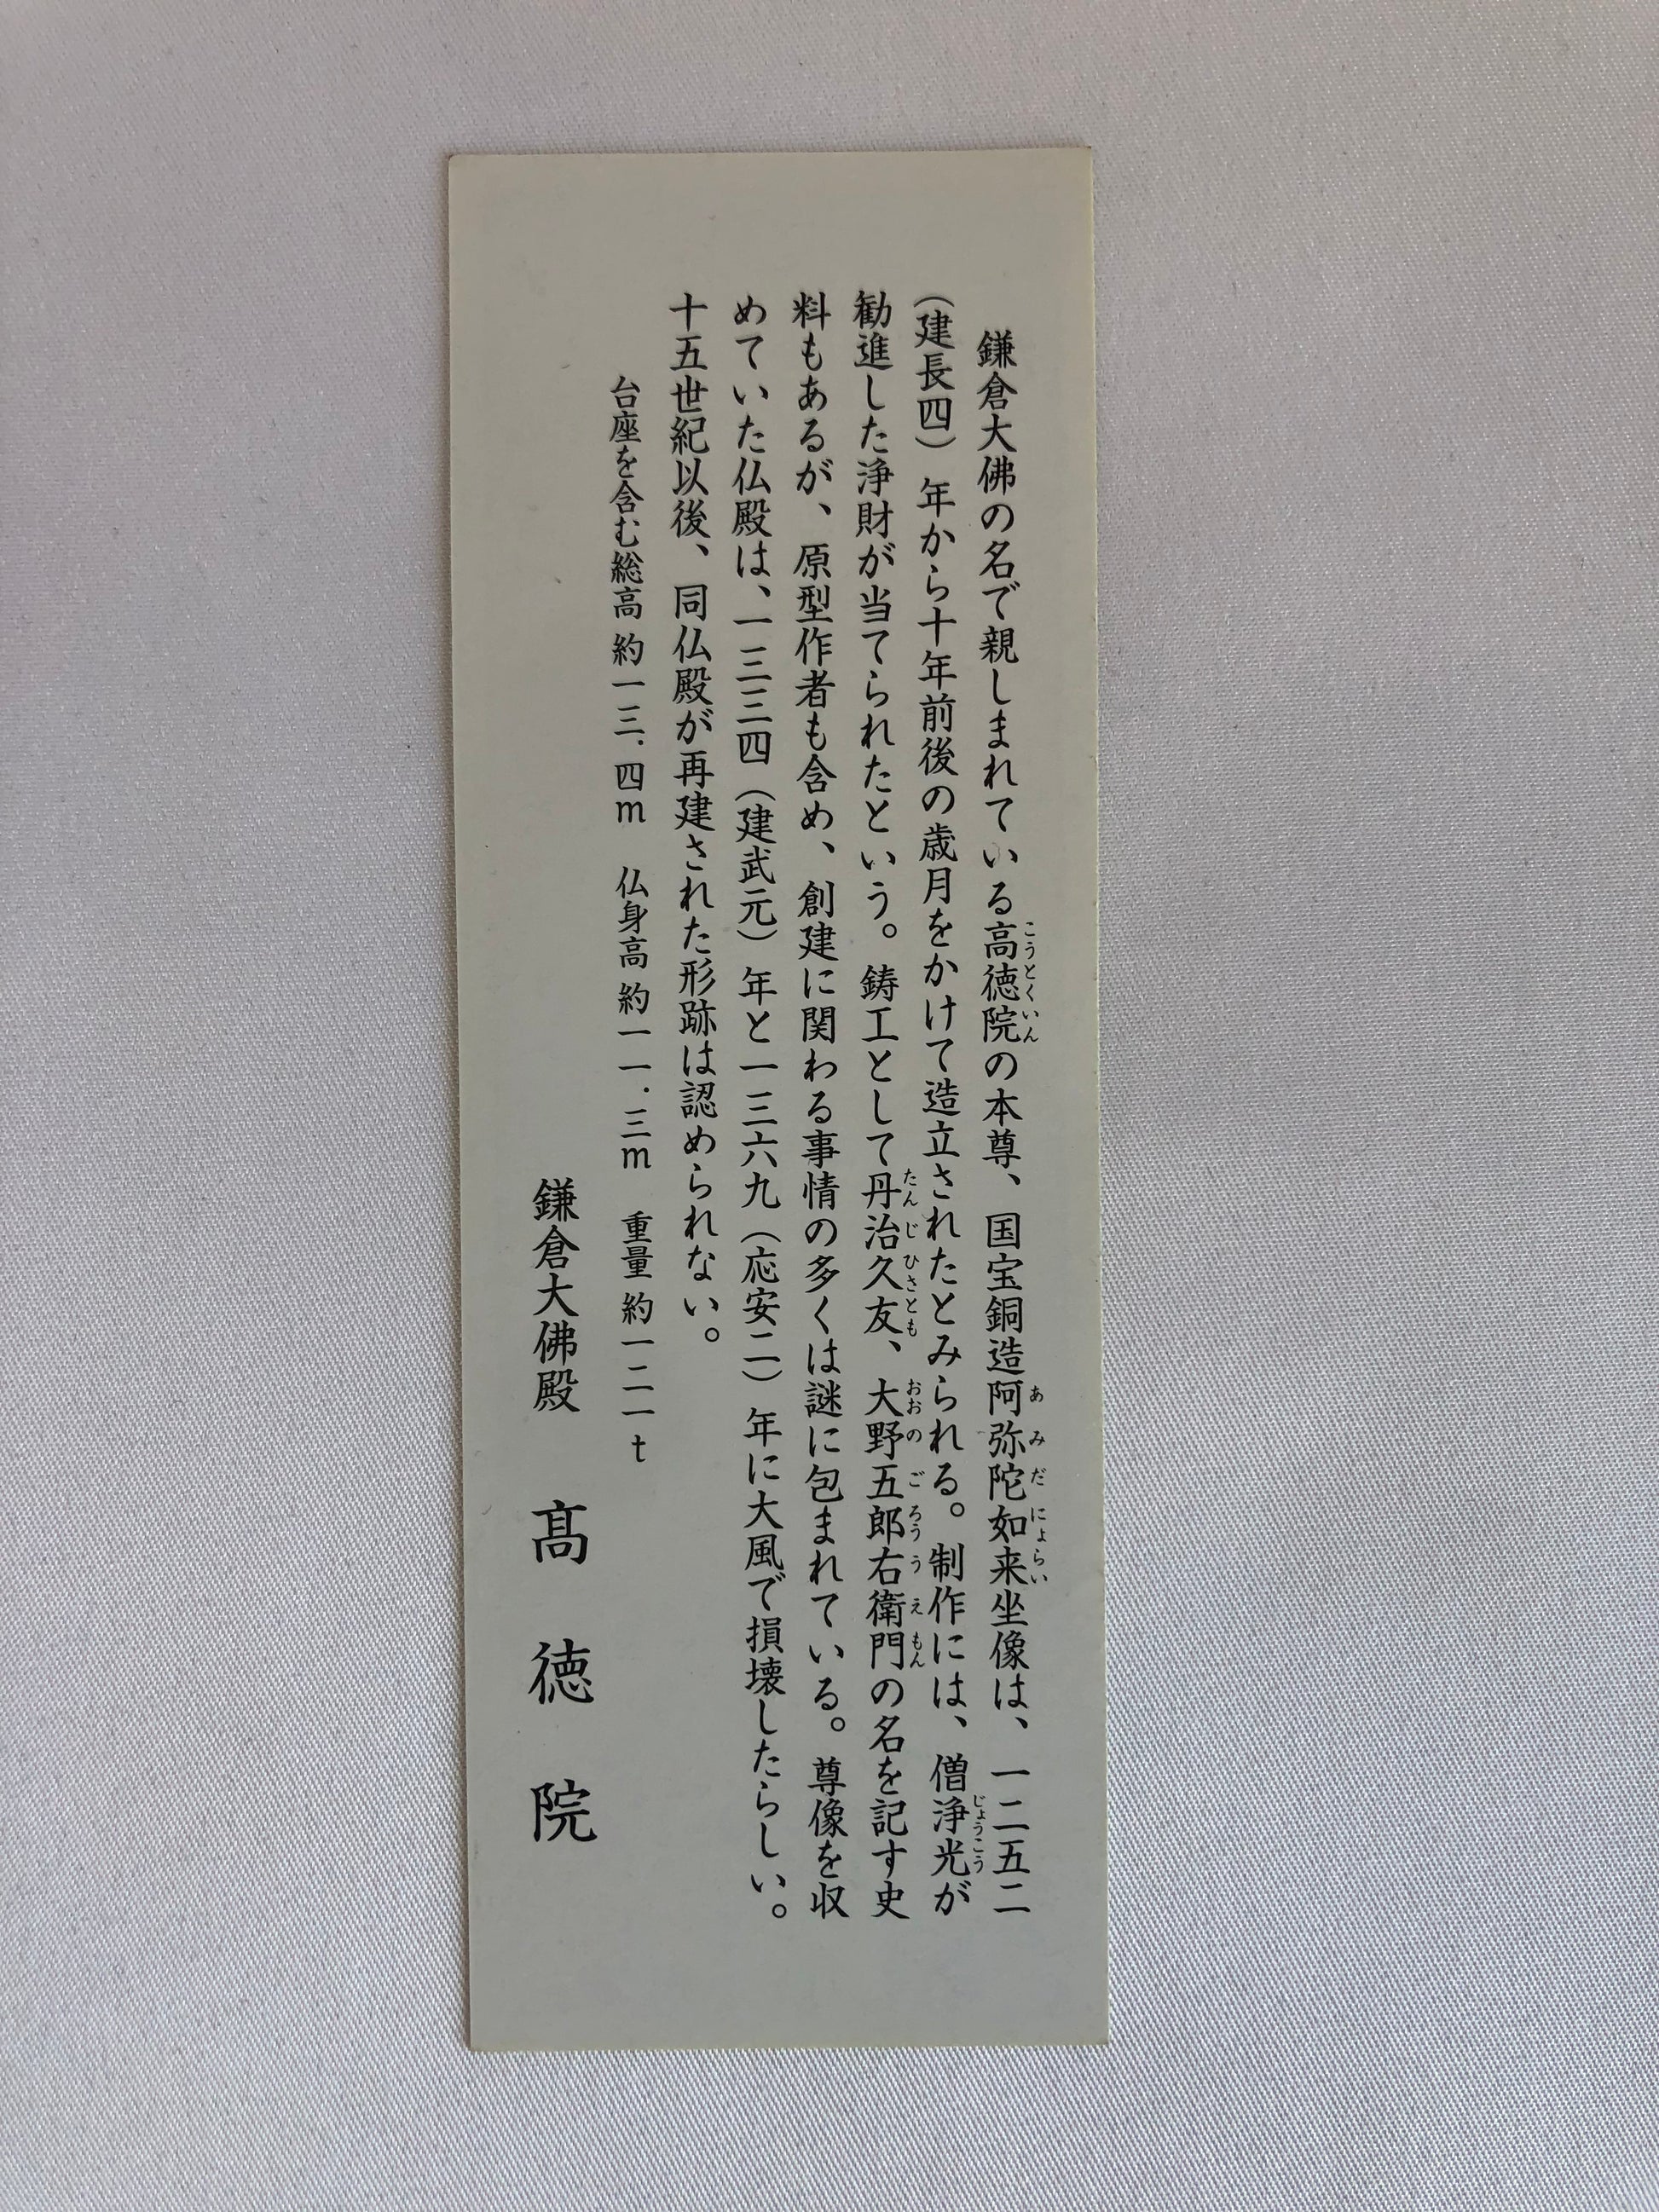 鎌倉大佛の名で親しまれている高徳院の本尊、国宝銅造阿弥陀如来坐像は、一二五二
（建長四）年から十年前後の歳月をかけて造立されたとみられる。制作には、僧浄光が
勧進した浄財が当てられたという。鋳工として丹治久友、大野五郎右衛門の名を記す史
料もあるが、原型作者も含め、創建に関わる事情の多くは謎に包まれている。尊像を収
めていた仏殿は、一三三四（建武元）年と一三六九（応安二）年に大風で損壊したらしい。
十五世紀以後、同仏殿が再建された形跡は認められない。
台座を含む総高 約一三.四m　仏身高 約一一.三m　重量 約一二一t
鎌倉大佛殿　髙徳院